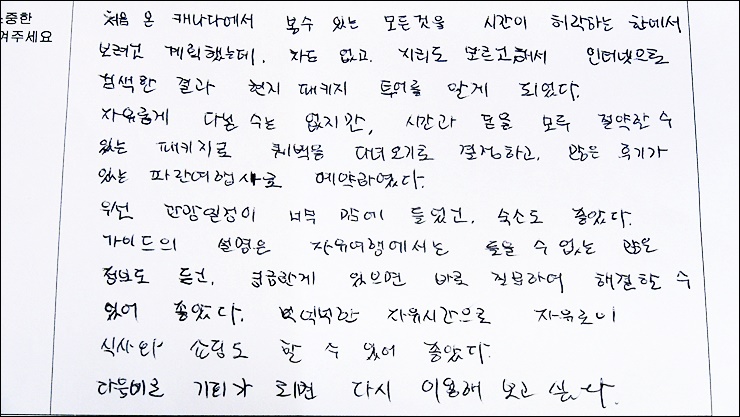 소중한
겨주세요
처음 온 캐나다에서 볼수 있는 모든것을 시간이 허락하는 한에서
보려고 계획했는데, 차도 없고, 지리도 모르고해서 인터넷으로
검색한 결과 현지 패키지 투어를 알게 되었다.
자유롭게 다닐 수는 없지만, 시간과 돈을 모두 절약할 수
있는 패키지로 퀘벡을 다녀오기로 결정하고, 많은 후기가
있는 파란여행사로 예약하였다.
우선 관광일정이 너무 맘에 들었고, 숙소도 좋았다.
가이드의 설명은 자유여행에서는 들을 수 없는 많은
정보도 듣고, 궁금한게 있으면 바로 질문하여 해결할 수
있어 좋았다. 넉넉한 자유시간으로 자유로이
식사와 쇼핑도 할 수 있어 좋았다.
다음에도 기회가 되면 다시 이용해 보고 싶다.